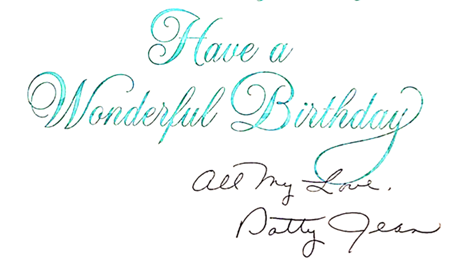 Have a
Wonderful Birthday
All My Love.
Patty Jean